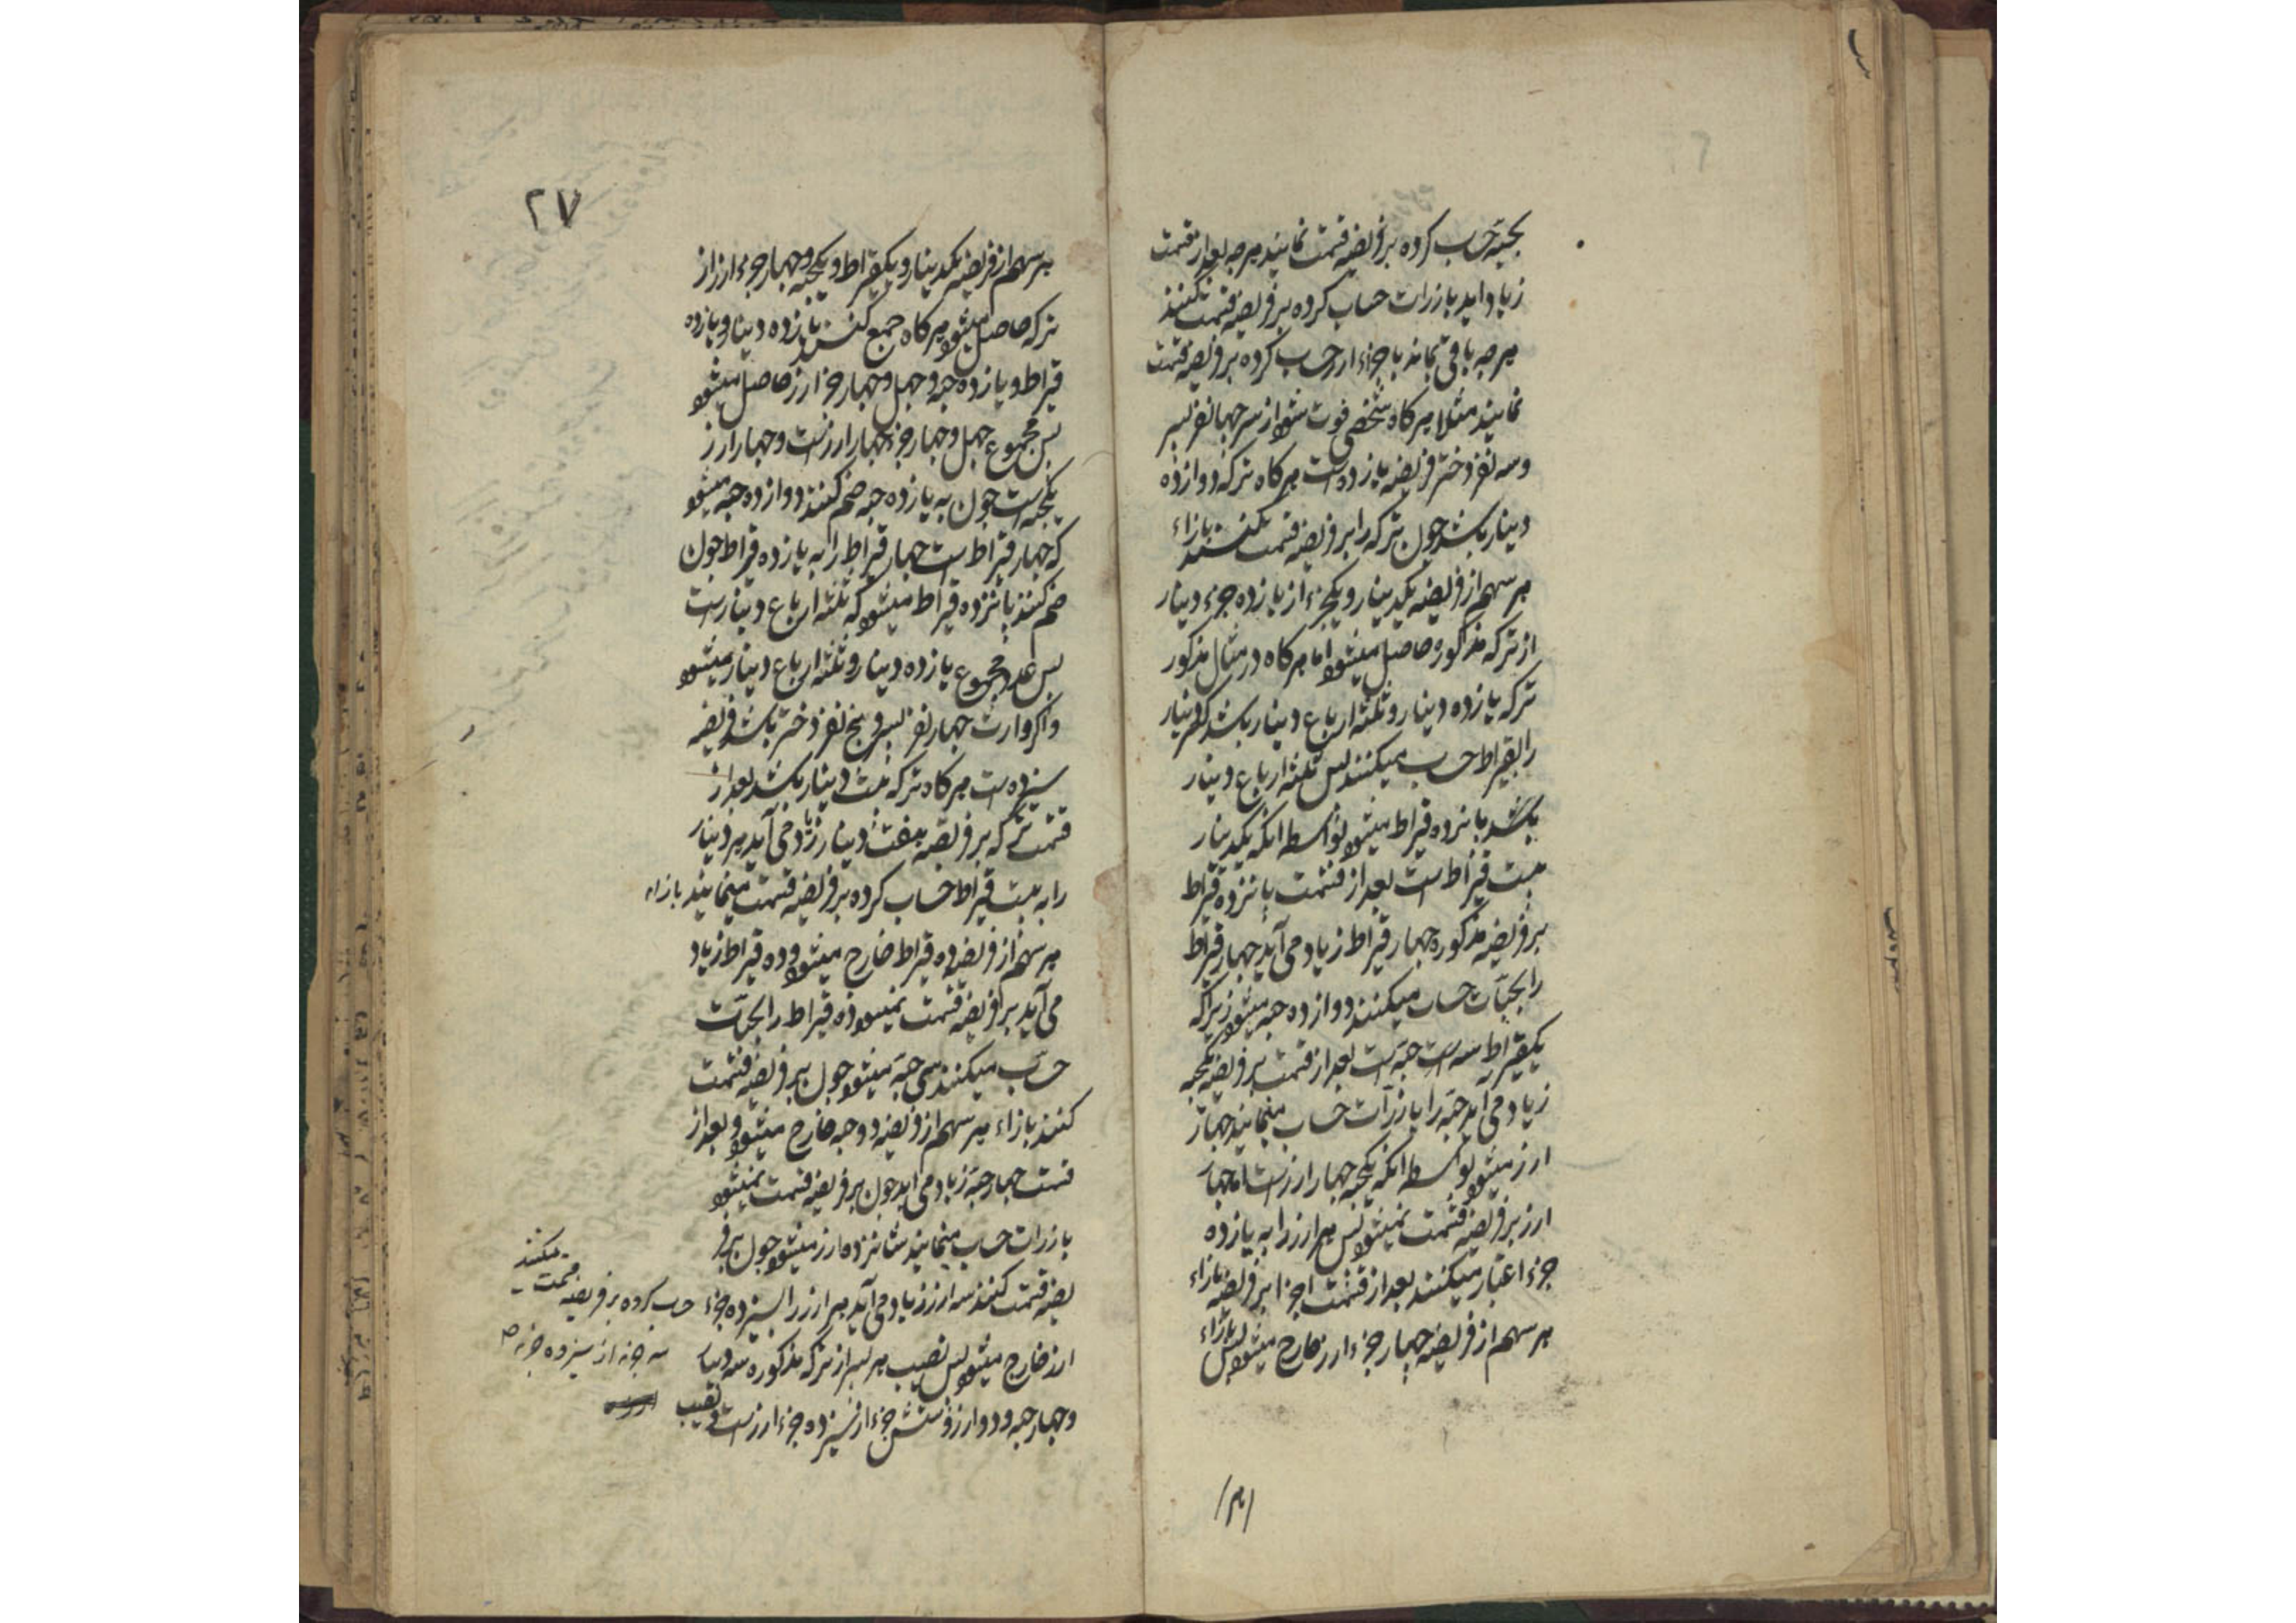 بحبه حساب کرده بر فریضه قسمت نمایند هرچه بعد از قسمت
زیاد اید بازرات حساب کرده بر فریضه قسمت کنند
هرچه باقی بماند باجزاء ارز حساب کرده بر فریضه قسمت
نمایند مثلا هر کاه شخصی فوت شود از سر چهار نفر پسر
وسه نفر دختر فریضه یازده است هر کاه ترکه دوازده
دینار باشد چون ترکه را بر فریضه قسمت کنند بازاء
هر سهم از فریضه یکدینار و یکجزء از یازده جزء دینار
از ترکه مذکوره حاصل میشود اما هر کاه در مثال مذکور
ترکه یازده دینار و ثلثه ارباع دینار باشد کسر دینار
را بقیراط حساب میکنند پس ثلثه ارباع دینار
باشد پانزده قیراط میشود بواسطه انکه یکدینار
بیست قیراط است بعد از قسمت پانزده قیراط
بر فریضه مذکوره چهار قیراط زیاد می آید چهار قیراط
را بحبات حساب میکنند دوازده حبه میشود زیراکه
یکقیراط سه است حبه است بعد از قسمت بر فریضه یکحبه
زیاد می اید حبه را بازرات حساب مینمایند چهار
ارز میشود بواسطه انکه یکحبه چهار ارز است اما چهار
ارز بر فریضه قسمت نمیشود پس هر ارز را به یازده
جزء اعتبار میکنند بعد از قسمت اجزا بر فریضه بازاء
هر سهم از فریضه چهار جزء ارز خارج میشود پس بازاء
۲۷
هر سهم از فریضه یکدینار و یکقیراط و یکحبه و چهار جزء ارز از
ترکه حاصل میشود هر کاه جمع کنند یازده دینار و یازده
قیراط و یازده حبه و چهل و چهار جزء ارز حاصل میشود
پس مجموع چهل و چهار جزء چهار ارز است و چهار ارز
یکحبه است چون به یازده حبه ضم کنند دوازده حبه میشود
که چهار قیراط است چهار قیراط را به یازده قیراط چون
ضم کنند پانزده قیراط میشود که ثلثه ارباع دینار است
پس عدد مجموع یازده دینار و ثلثه ارباع دینار میشود
واکر وارث چهار نفر پسر و پنج نفر دختر باشد فریضه
سیزده است هر کاه ترکه بیست دینار باشد بعد از
قسمت ترکه بر فریضه هفت دینار زیاد می آید هر دینار
را به بیست قیراط حساب کرده بر فریضه قسمت مینمایند بازاء
هر سهم از فریضه ده قیراط خارج میشود و ده قیراط زیاد
می آید بر فریضه قسمت نمیشود ده قیراط را بحبات
حساب میکنند سی حبه میشود چون بر فریضه قسمت
کنند بازاء هر سهم از فریضه دو حبه خارج میشود و بعد از
قسمت چهار حبه زیاد می اید چون بر فریضه قسمت نمیشود
بازرات حساب مینمایند شانزده ارز میشود چون بر فر
یضه قسمت کنند سه ارز زیاد می آید هر ارز را بسیزده جزء حساب کرده بر فریضه قسمت میکنند
ارز خارج میشود پس نصیب هر پسر از ترکه مذکوره سه دینار
سه جزء از سیزده جزء
و چهار حبه و دو ارز و شش جزء از سیزده جزء ارز است و نصیب